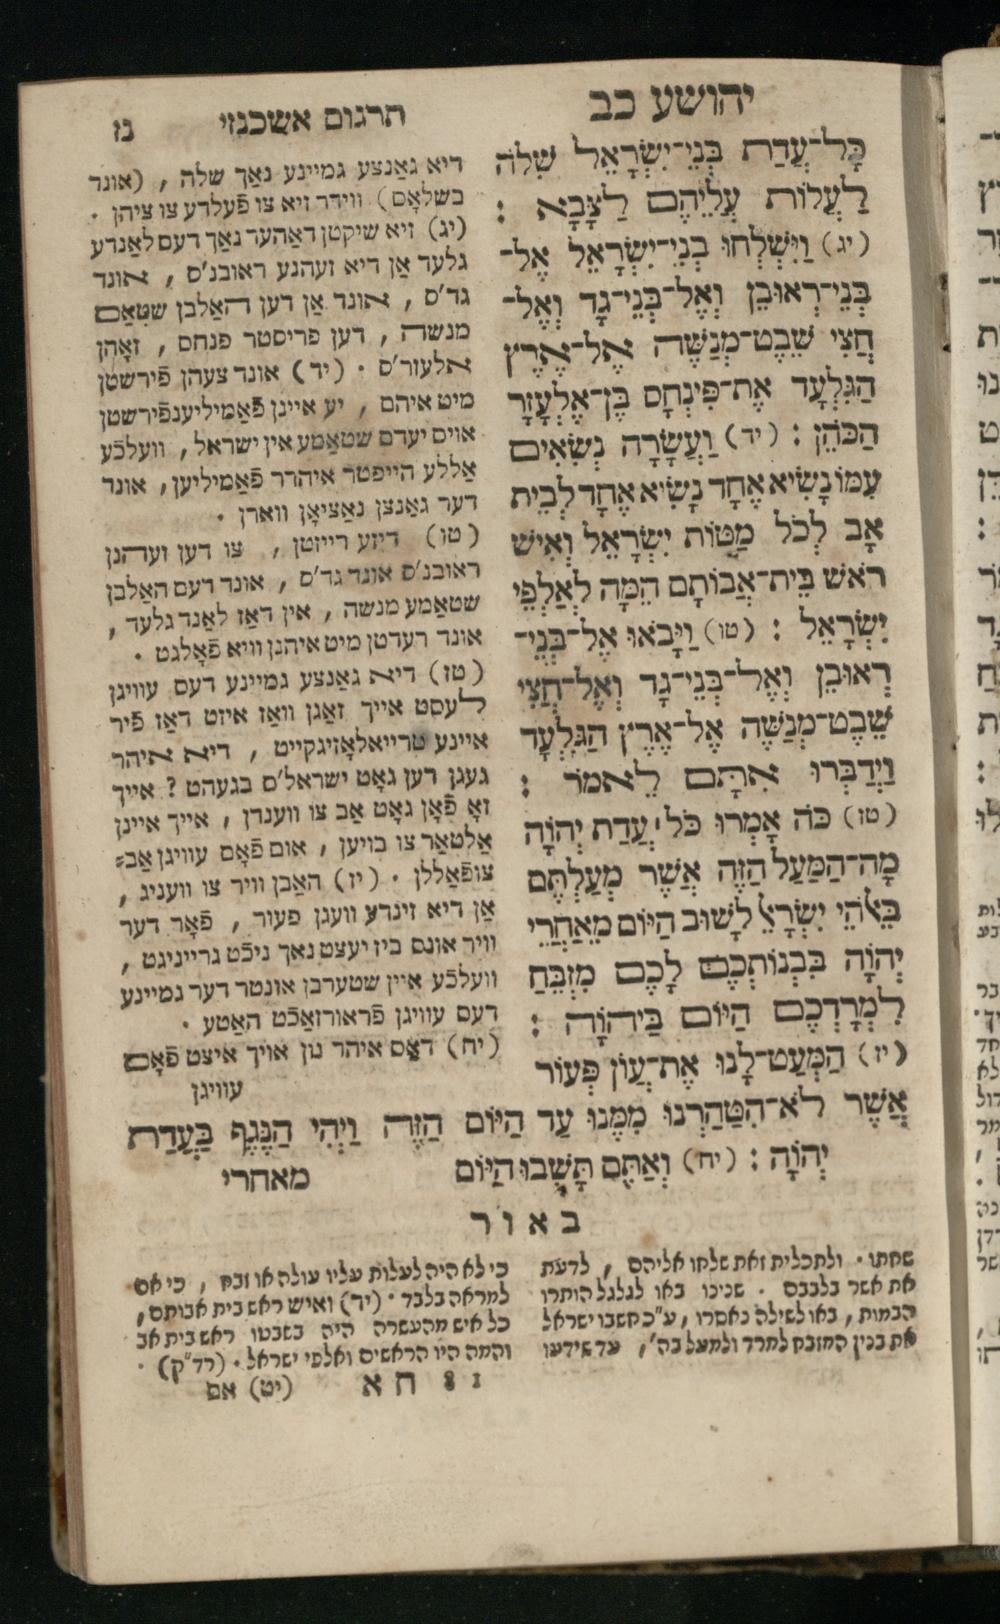 יהושע כב
תרגום אשכנזי
נז
כָּל־עֲדַת בְּנֵי־יִשְׂרָאֵל שִׁלֹה
לַעֲלוֹת עֲלֵיהֶם לַצָּבָא :
(יג) וַיִּשְׁלְחוּ בְנֵי־יִשְׂרָאֵל אֶל־
בְּנֵי־רְאוּבֵן וְאֶל־בְּנֵי־גָד וְאֶל־
חֲצִי שֵׁבֶט־מְנַשֶּׁה אֶל־אֶרֶץ
הַגִּלְעָד אֶת־פִּינְחָס בֶּן־אֶלְעָזָר
הַכֹּהֵן : (יד) וַעֲשָׂרָה נְשִׂאִים
עִמּוֹ נָשִׂיא אֶחָד נָשִׂיא אֶחָד לְבֵית
אָב לְכֹל מַטּוֹת יִשְׂרָאֵל וְאִישׁ
רֹאשׁ בֵּית־אֲבוֹתָם הֵמָּה לְאַלְפֵי
יִשְׂרָאֵל : (טו) וַיָּבֹאוּ אֶל־בְּנֵי־
רְאוּבֵן וְאֶל־בְּנֵי־גָד וְאֶל־חֲצִי
שֵׁבֶט־מְנַשֶּׁה אֶל־אֶרֶץ הַגִּלְעָד
וַיְדַבְּרוּ אִתָּם לֵאמֹר :
(טז) כֹּה אָמְרוּ כֹּל ׀ עֲדַת יְהוָֹה
מָה־הַמַּעַל הַזֶּה אֲשֶׁר מְעַלְתֶּם
בֵּאלֹהֵי יִשְׂרָאֵל לָשׁוּב הַיּוֹם מֵאַחֲרֵי
יְהוָֹה בִּבְנוֹתְכֶם לָכֶם מִזְבֵּחַ
לִמְרָדְכֶם הַיּוֹם בַּיהוָֹה :
(יז) הַמְעַט־לָנוּ אֶת־עֲוֹן פְּעוֹר
אֲשֶׁר לֹא־הִטַּהַרְנוּ מִמֶּנּוּ עַד הַיּוֹם הַזֶּה וַיְהִי הַנֶּגֶף בַּעֲדַת
יְהוָֹה : (יח) וְאַתֶּם תָּשֻׁבוּ הַיּוֹם
מאחרי
דיא גאַנצע גמיינע נאַך שלה , (אונד
בשלאָם) ווידר זיא צו פֿעלדע צו ציהן .
(יג) זיא שיקטן דאַהער נאַך דעם לאַנדע
גלעד אַן דיא זעהנע ראובנ'ס , אונד
גד'ס , אונד אַן דען האַלבן שטאַם
מנשה , דען פריסטר פנחס , זאָהן
אלעזר'ס . (יד) אונד צעהן פֿירשטן
מיט איהם , יע איינן פֿאַמיליענפֿירשטן
אויס יעדם שטאַטע אין ישראל , וועלכֿע
אַללע הייפטר איהרר פֿאַמיליען , אונד
דער גאַנצן נאַציאָן ווארן .
(טו) דיזע רייזטן , צו דען זעהנן
ראובנ'ס אונד גד'ס , אונד דעם האַלבן
שטאַמע מנשה , אין דאַז לאַנד גלעד ,
אונד רעדטן מיט איהנן וויא פֿאָלגט .
(טז) דיא גאַנצע גמיינע דעס עוויגן
לעסט אייך זאַגן וואַז איזט דאַז פֿיר
איינע טרייאלאָזיגקייט , דיא איהר
געגן דען גאָט ישראל'ס בגעהט ? אייך
זאָ פֿאָן גאָט אַב צו ווענדן , אייך איינן
אַלטאַר צו בויען , אום פֿאָם עוויגן אַב=
צופֿאַללן . (יז) האַבן וויר צו וועניג ,
אַן דיא זינדע וועגן פעור , פֿאָר דער
וויר אונס ביז יעצט נאך ניכֿט גרייניגט ,
וועלכֿע איין שטערבן אונטר דער גמיינע
דעס עוויגן פֿראורזאַכֿט האַטע .
(יח) דאַס איהר נון אויך איצט פֿאָם
עוויגן
באור
שחתו . ולתכלית זאת שלחו אליהם , לדעת
את אשר בלבבם . שכיכו באו לגלגל הותרו
הבמות , באו לשילה נאסרו , ע"כ חשבו ישראל
את בנין המזבח למרד ולמעל בה' , עד שידעו
כי לא היה לעלות עליו עולה או זבח , כי אם
למראה בלבד . (יד) ואיש ראש בית אבותם ,
כל איש מהעשרה היה בשבטו ראש בית אב
והמה היו הראשים ואלפי ישראל . (רד"ק) .
18 חא
(יט) אם